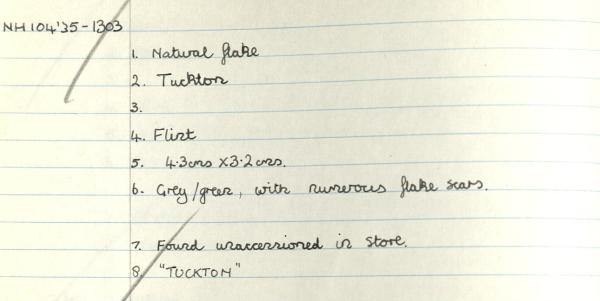 NH104'35-1303
1. Natural flake
2. Tuckton
3.
4. Flint
5. 4.3cms x3.2cms.
6. Grey/green, with numerous flake scars.
7. Found unaccessioned in store.
8. "TUCKTON"